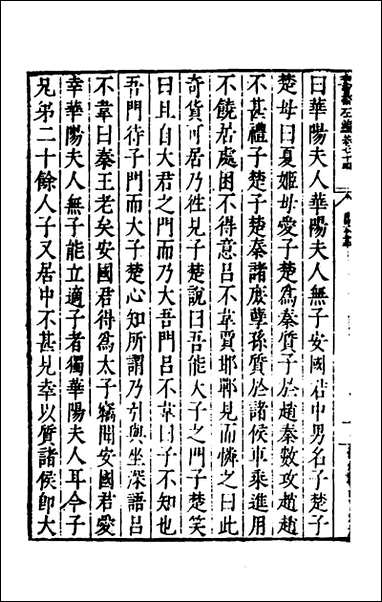 曰華陽夫人華陽夫人無子安國君中男名子楚子
楚母曰夏姬母愛子楚爲秦質子於趙秦數攻趙趙
不甚禮子楚子楚秦諸庶孽孫質於諸侯車乘進用
不饒居處困不得意呂不韋賈邯鄲見而憐之曰此
奇貨可居乃徃見子楚說曰吾能大子之門子楚笑
曰且自大君之門而乃大吾門呂不韋曰子不知也
吾門待子門而大子楚心知所謂乃引與坐深語呂
不韋曰秦王老矣安國君得爲太子竊聞安國君愛
幸華陽夫人華陽夫人無子能立適子者獨華陽夫人耳今子
兄弟二十餘人子又居中不甚見幸以質諸侯卽大